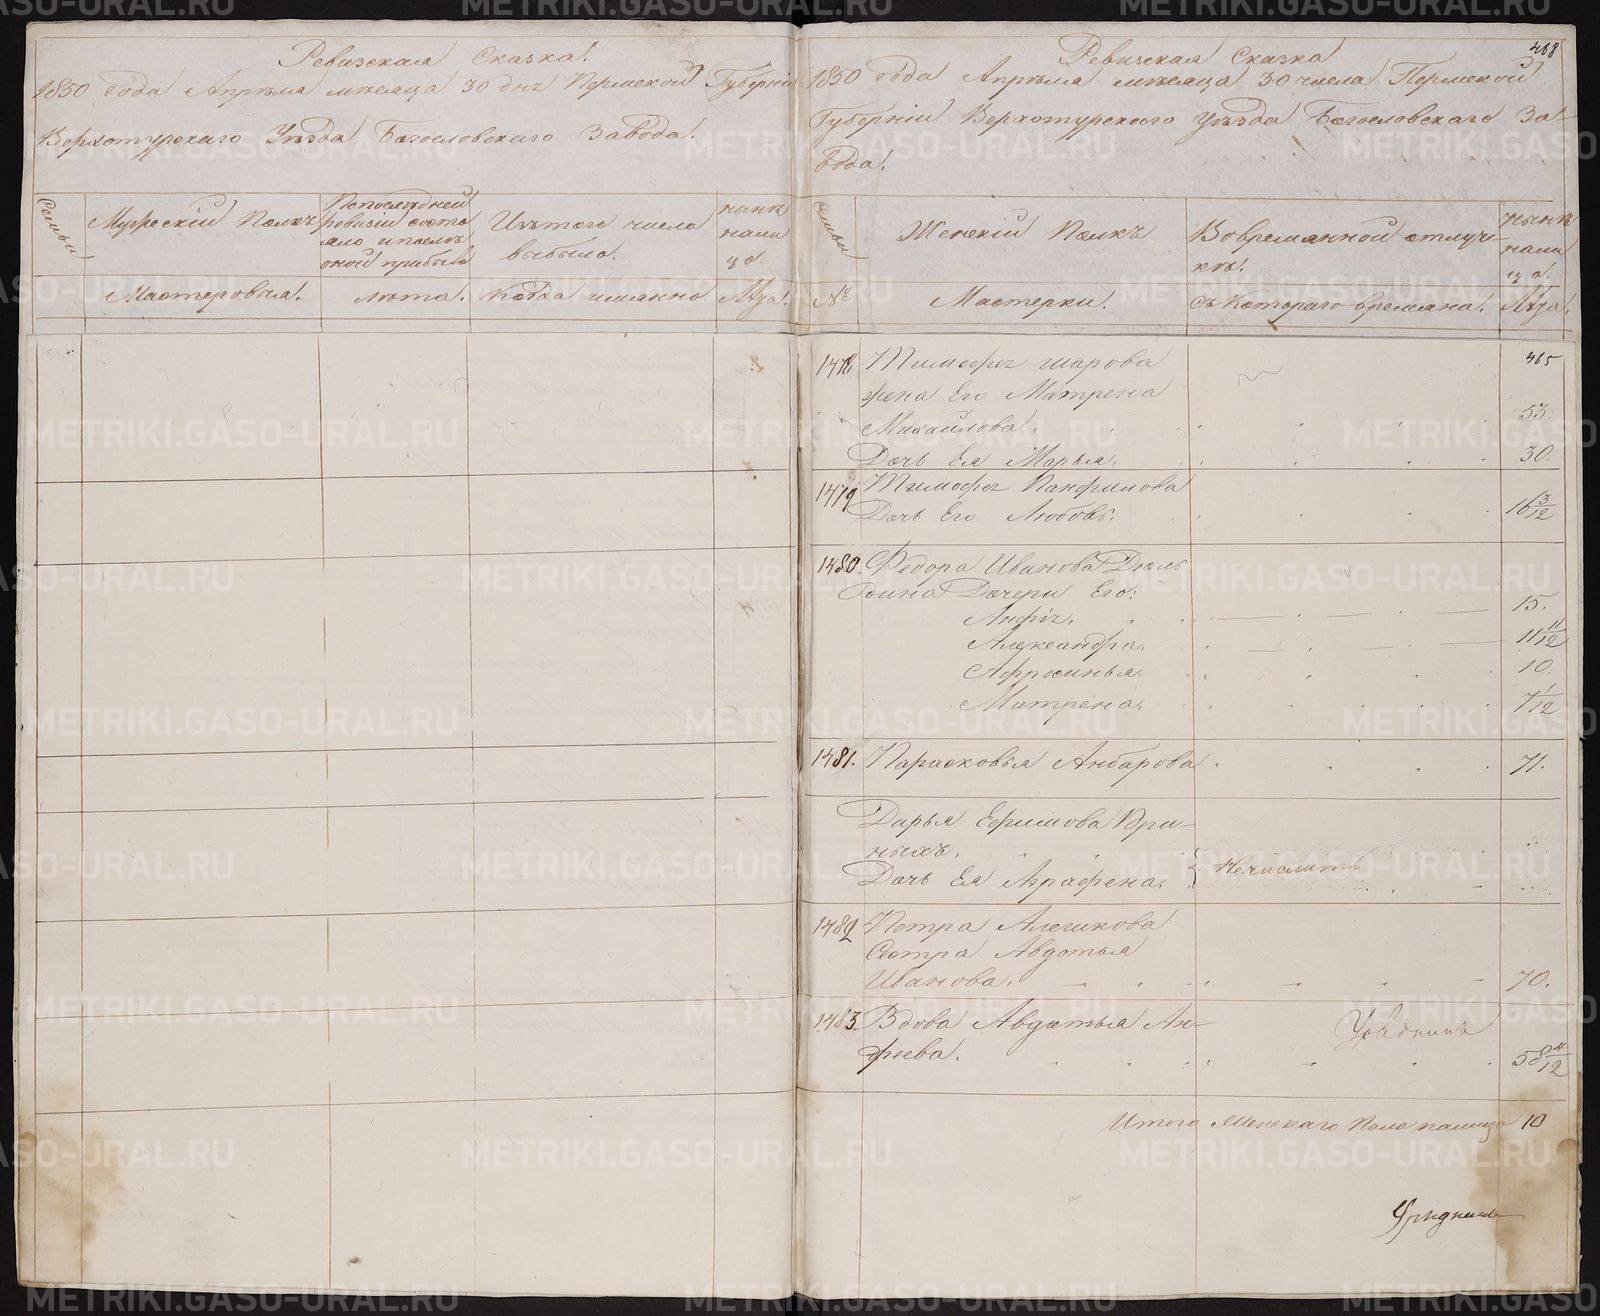 Ревизская Сказка.
1850 года Апреля месяца 30 днъ Пермской Губерніи
Верхотурскаго Уезда Богословскаго Завода.
Семьи
Мужескій Полкъ
По последней ревизіи состояло и после оной прибыло
Изтого числа выбыло.
ныне налицо
Мастеровыя.
лета.
Когда имянно.
Лета.
468
Ревизская Сказка
1850 года Апреля месяца 30 числа Пермской
Губерніи Верхотурскаго Уезда Богословскаго За-
вода.
Семьи
Женскій Полкъ
Вовременной отлучке.
ныне налицо.
№
Мастерки.
съ Котораго времяна.
Лета.
465
1478 Тимофея Шарова
жена Его Матрена
Михайлова. 53.
Дочь Ея Марья. 30.
1479 Тимофея Панфилова
Дочь Его Любовь. 16 3/12
1480. Федора Иванова Дюль
дина Дочери Его:
Анфія. 15.
Александра. 11 11/12
Афросинья. 10.
Матрена. 7 1/12
1481. Парасковья Анбарова 71.
Дарья Ефимова При-
ныхъ.
Дочь Ея Аграфена. Нечислить
1482 Петра Алешкова
Сестра Авдотья
Иванова. 70.
1483. Вдова Авдотья Ан-
фиева. 58 11/12
Итого Женскаго Пола налицо 10
METRIKI.GASO-URAL.RU